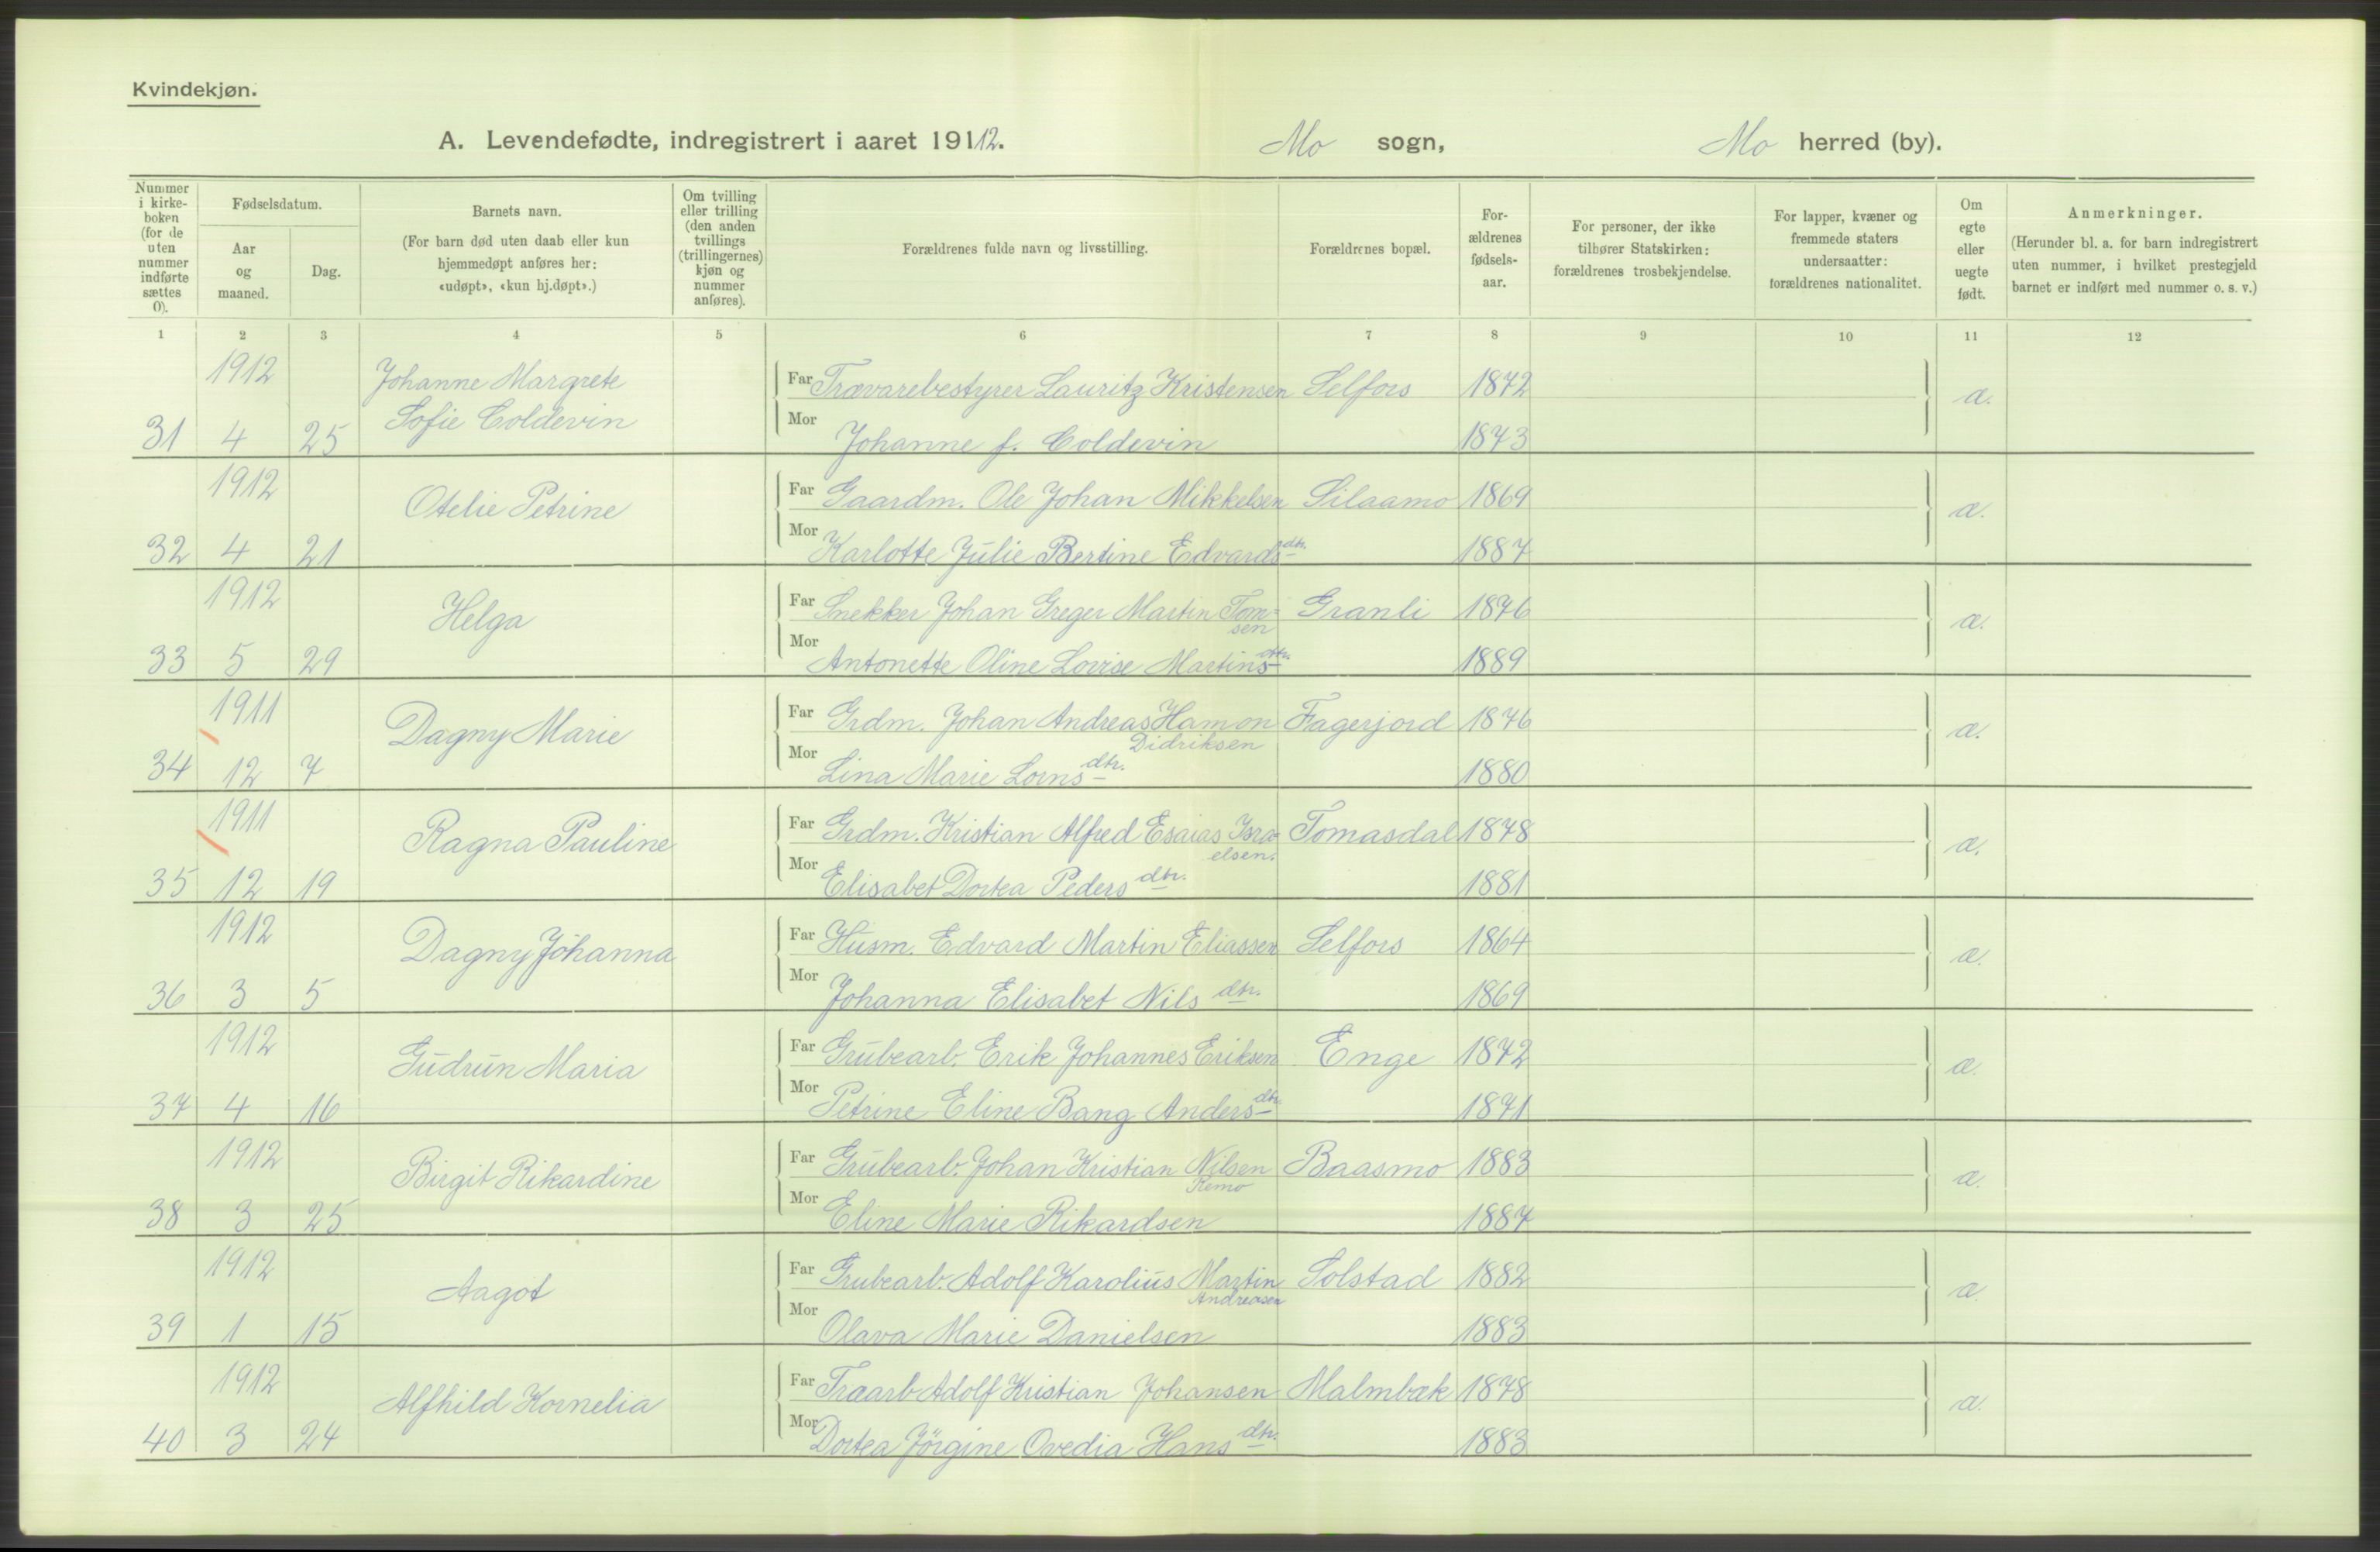 Kvindekjøn.
A. Levendefødte, indregistrert i aaret 1912. Mo sogn, Mo herred (by).
Nummer i kirke-boken (for de uten nummer indførte sættes 0).
Fødselsdatum.
Aar og maaned.
Dag.
Barnets navn.
(For barn død uten daab eller kun hjemmedøpt anføres her: «udøpt», «kun hj.døpt».)
Om tvilling eller trilling (den anden tvillings (trillingernes) kjøn og nummer anføres).
Forældrenes fulde navn og livsstilling.
Forældrenes bopæl.
For-ældrenes fødsels-aar.
For personer, der ikke tilhører Statskirken: forældrenes trosbekjendelse.
For lapper, kvæner og fremmede staters undersaatter: forældrenes nationalitet.
Om egte eller uegte født.
Anmerkninger.
(Herunder bl. a. for barn indregistrert uten nummer, i hvilket prestegjeld barnet er indført med nummer o. s. v.)
1 2 3 4 5 6 7 8 9 10 11 12
1912 Johanne Margrete Far Trævarebestyrer Lauritz Kristensen Selfors 1872 æ.
31 4 25 Sofie Coldevin Mor Johanne f. Coldevin 1873
1912 Otelie Petrine Far Gaardm. Ole Johan Mikkelsen Silaamo 1869 æ.
32 4 21 Mor Karlotte Julie Bertine Edvardsdtr. 1887
1912 Helga Far Snekker Johan Greger Martin Tom-sen Granli 1876 æ.
33 5 29 Mor Antonette Oline Lovise Martinsdtr. 1889
1911 Dagny Marie Far Grdm. Johan Andreas Hamon Didriksen Fagerjord 1876 æ.
34 12 7 Mor Lina Marie Lornsdtr. 1880
1911 Ragna Pauline Far Grdm. Kristian Alfred Esaias Isra-elsen. Tomasdal 1878 æ.
35 12 19 Mor Elisabet Dortea Pedersdtr. 1881
1912 Dagny Johanna Far Husm. Edvard Martin Eliassen Selfors 1864 æ.
36 3 5 Mor Johanna Elisabet Nilsdtr. 1869
1912 Gudrun Maria Far Grubearb. Erik Johannes Eriksen Enge 1872 æ.
37 4 16 Mor Petrine Eline Bang Andersdtr. 1871
1912 Birgit Rikardine Far Grubearb. Johan Kristian Nilsen Remo Baasmo 1883 æ.
38 3 25 Mor Eline Marie Rikardsen 1887
1912 Aagot Far Grubearb. Adolf Karolius Martin Andreasen Solstad 1882 æ.
39 1 15 Mor Olava Marie Danielsen 1883
1912 Alfhild Kornelia Far Træarb Adolf Kristian Johansen Malmbæk 1878 æ.
40 3 24 Mor Dortea Jörgine Ovedia Hansdtr. 1883